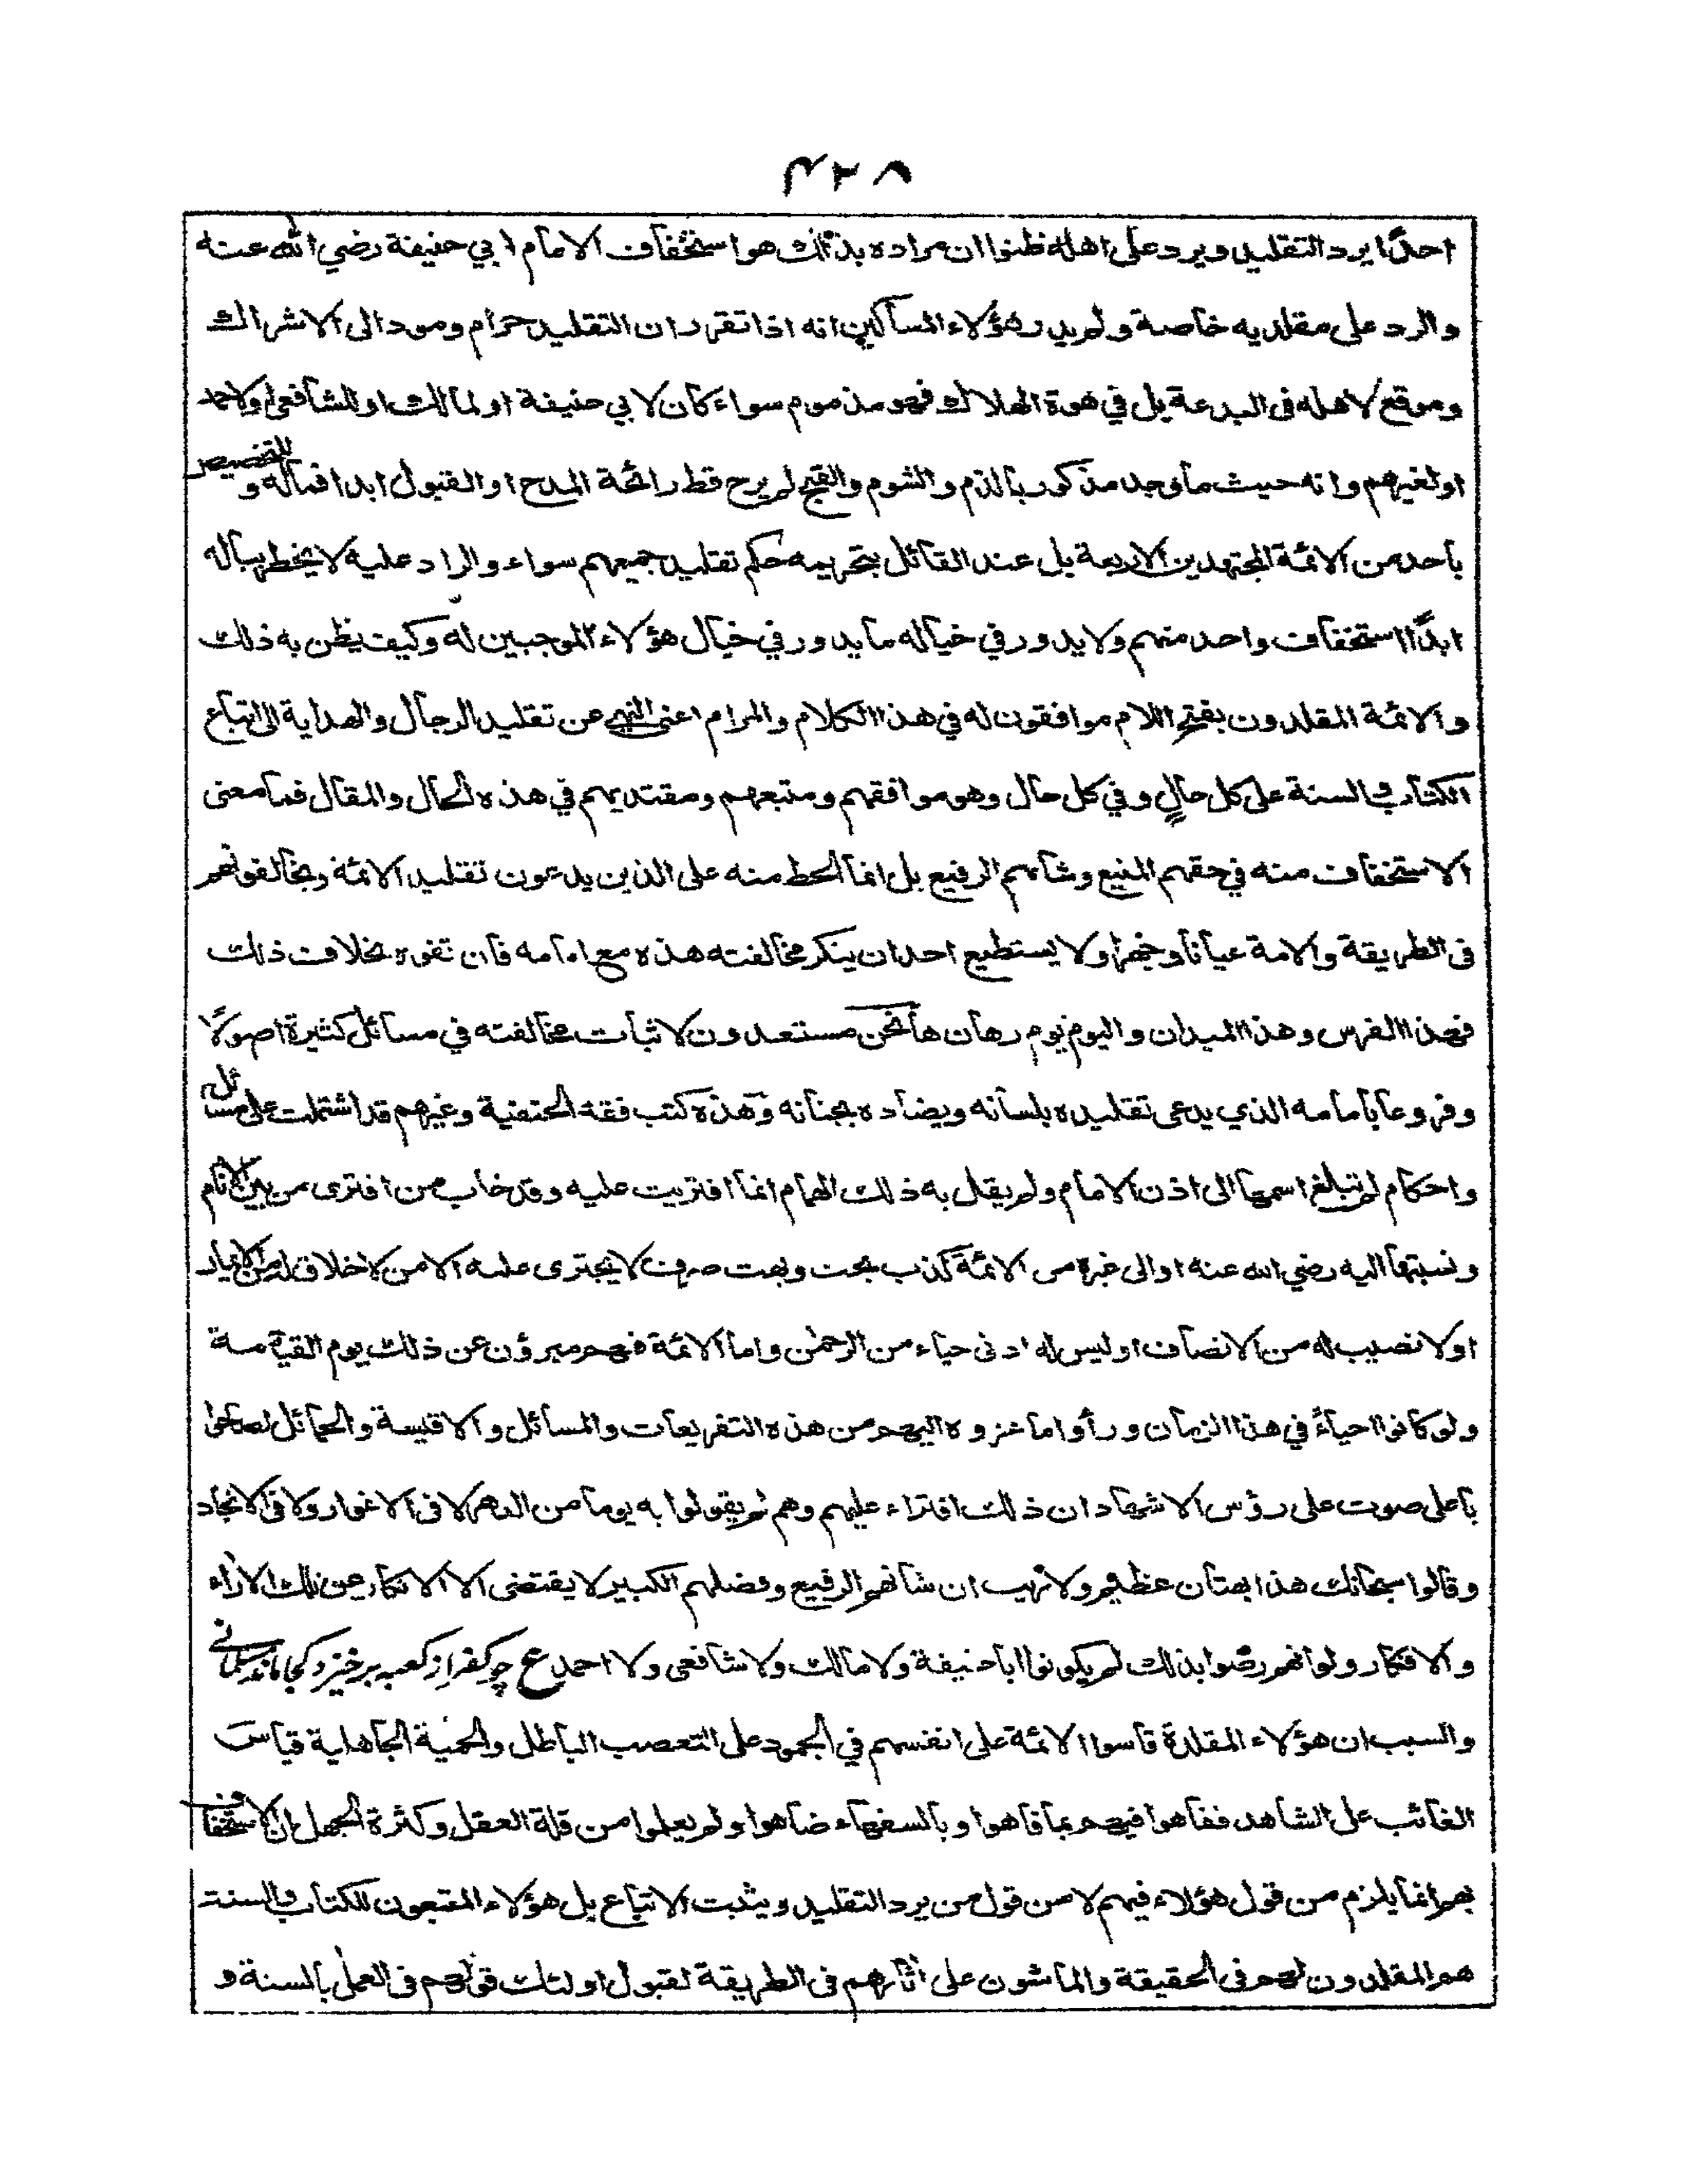 ٤٢٨
احدًا يرد التقليد ويرد على اهله ظنوا ان مراده بذلك هو استخفاف الامام ابي حنيفة رضي الله عنه
والرد على مقلديه خاصة ولم يدر هؤلاء المساكين انه اذا تقرر ان التقليد حرام ومود الى الاشراك
وموقع لاهله فى البدعة بل في هوة الهلاك فهو مذموم سواء كان لابي حنيفة او لمالك او للشافعي او لاحمد
او لغيرهم وانه حيث ما وجد مذكور بالذم والشوم والقبح لم يرح قط رائحة المدح او القبول ابدا فماله وللتخصيص
باحد من الائمة المجتهدين الاربعة بل عند القائل بتحريمه حكم تقليد جميعهم سواء والراد عليه لا يخطر بباله
ابدًا استخفاف واحد منهم ولا يدور في خياله ما يدور في خيال هؤلاء الموجبين له وكيف يظن به ذلك
والائمة المقلدون بفتح اللام موافقون له في هذا الكلام والمرام اعنى النهي عن تقليد الرجال والهداية الى اتباع
الكتاب والسنة على كل حالٍ وفي كل حال وهو موافقهم ومتبعهم ومقتديهم في هذه الحال والمقال فما معنى
الاستخفاف منه في حقهم المنيع وشانهم الرفيع بل انما الحط منه على الذين يدعون تقليد الائمة ويخالفونهم
فى الطريقة والامة عيانا وجهرا ولا يستطيع احد ان ينكر مخالفته هذه مع امامه فان تفوه بخلاف ذلك
فهذا الفرس وهذا الميدان واليوم يوم رهان ها نحن مستعدون لاثبات مخالفته في مسائل كثيرة اصولًا
وفروعا بامامه الذي يدعى تقليده بلسانه ويضاده بجنانه وهذه كتب فقه الحنفية وغيرهم قد اشتملت على مسائل
واحكام لم تبلغ اسمها الى اذن الامام ولم يقل به ذلك الهمام انما افتريت عليه وقد خاب من افترى من بين الانام
ونسبتها اليه رضي الله عنه او الى غيره من الائمة كذب بحت وبهت صرف لا يجترى عليه الا من لا خلاق له من الايمان
او لا نصيب له من الانصاف او ليس له ادنى حياء من الرحمٰن واما الائمة فهم مبرؤن عن ذلك يوم القيٰمة
ولو كانوا احياءً في هذا الزمان ورأوا ما عزوه اليهم من هذه التفريعات والمسائل والاقيسة والحمائل لصاحوا
باعلى صوت على رؤس الاشهاد ان ذلك افتراء عليهم وهم لم يقولوا به يوما من الدهر لا فى الاغوار ولا فى الانجاد
وقالوا سبحانك هذا بهتان عظيم ولا ريب ان شانهم الرفيع وفضلهم الكبير لا يقتضى الا الانكار عن تلك الآراء
والافكار ولو انهم رضوا بذلك لم يكونوا ابا حنيفة ولا مالك ولا شافعى ولا احمد ع چو كفر از كعبه بر خيزد كجا ماند مسلمانے
والسبب ان هؤلاء المقلدة قاسوا الائمة على انفسهم في الجمود على التعصب الباطل والحمية الجاهلية قياس
الغائب على الشاهد ففاهوا فيهم بما فاهوا وبالسفهاء ضاهوا ولم يعلموا من قلة العقل وكثرة الجهل ان الاستخفاف
بهم انما يلزم من قول هؤلاء فيهم لا من قول من يرد التقليد ويثبت الاتباع بل هؤلاء المتبعون للكتاب والسنة
هم المقلدون لهم فى الحقيقة والماشون على اٰثارهم فى الطريقة لقبول اولئك قولهم فى العمل بالسنة و